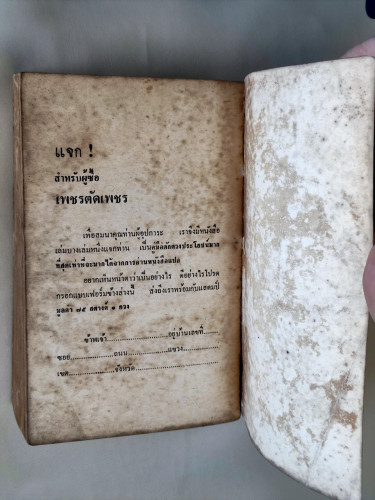 แจก !
สำหรับผู้ซื้อ
เพชรตัดเพชร
เพื่อสมนาคุณท่านผู้อุปการะ เราจึงมีหนังสือ
เล่มบางเล่มหนึ่งแจกท่าน เป็นคู่มือตักตวงประโยชน์มาก
ที่สุดเท่าที่จะมากได้จากการอ่านหนังสือแปด
อยากเห็นหน้าตาว่าเป็นอย่างไร ดีอย่างไรโปรด
กรอกแบบฟอร์มข้างล่างนี้ ส่งถึงเราพร้อมกับแสตมป์
มูลค่า ๗๕ สตางค์ ๑ ดวง
ข้าพเจ้า........................อยู่บ้านเลขที่......
ซอย................ถนน................แขวง............
เขต................จังหวัด........................